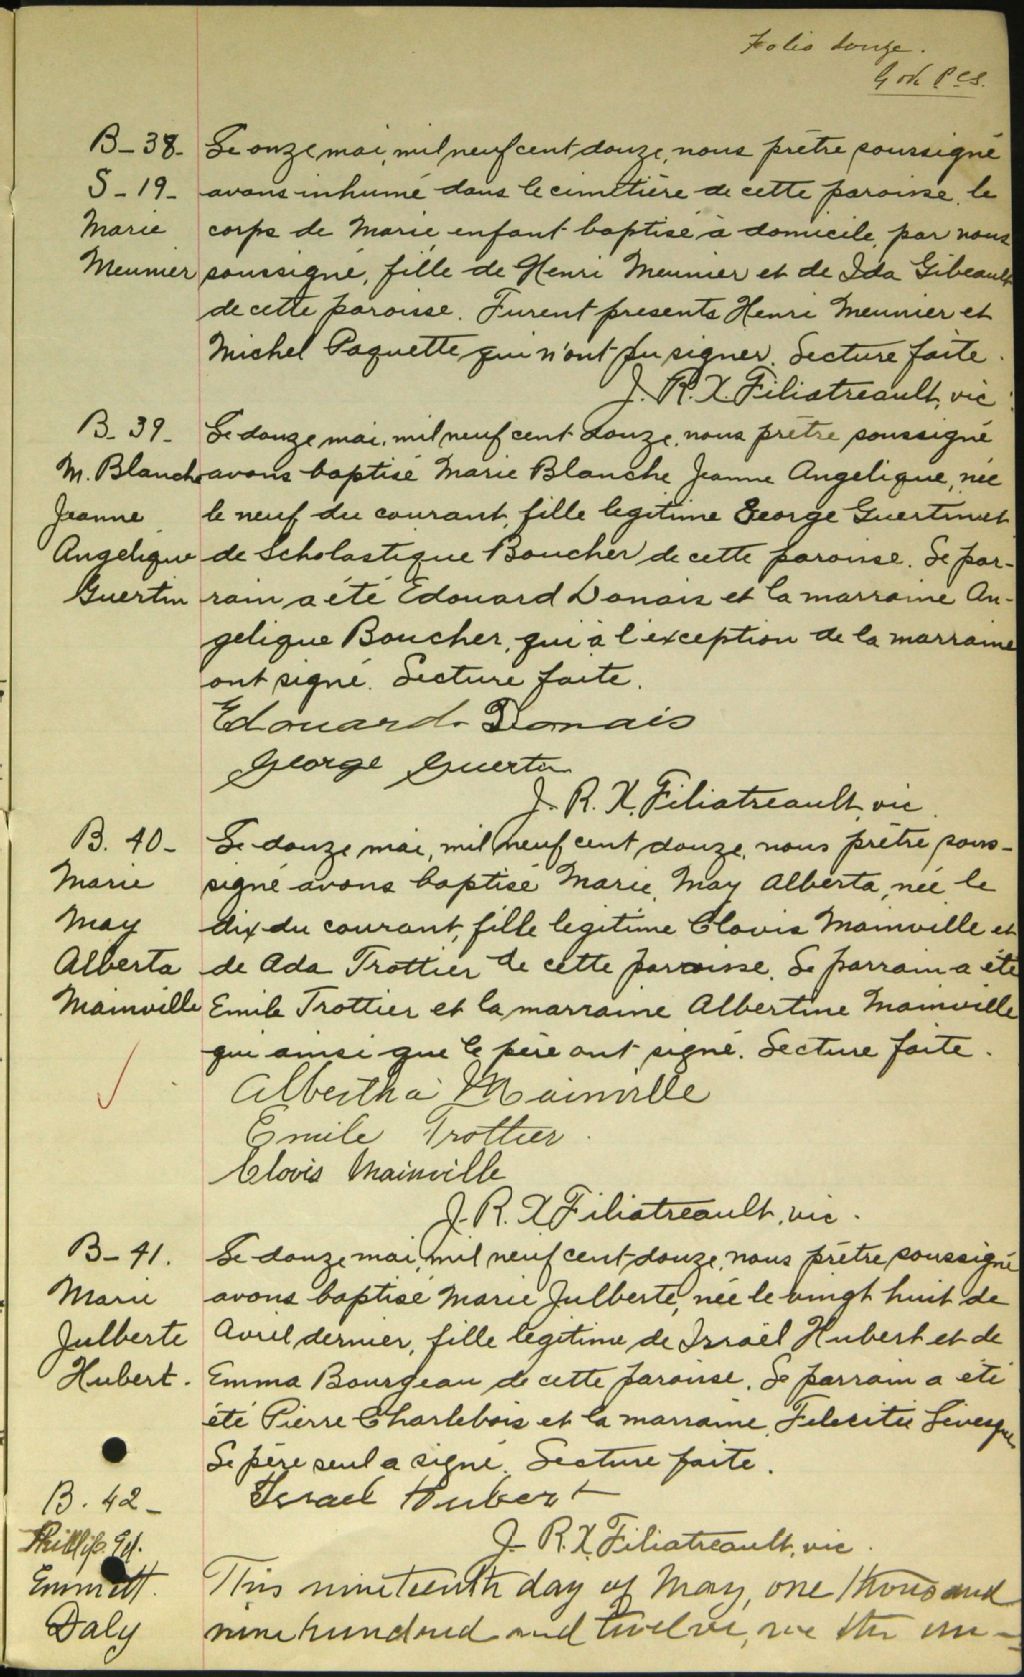 Folio douze.
B-38- Le onze mai, mil neuf cent douze, nous prêtre soussigné
S-19- avons inhumé dans le cimetière de cette paroisse, le
Marie corps de Marie enfant baptisé à domicile, par nous
Meunier soussigné, fille de Henri Meunier et de Ida Gibeault
de cette paroisse. Furent presents Henri Meunier et
Michel Paquette qui n'ont pu signer. Lecture faite.
J. R. X. Filiatreault, vic.
B-39- Le douze mai, mil neuf cent douze, nous prêtre soussigné
M. Blanche avons baptisé Marie Blanche Jeanne Angelique, née
Jeanne le neuf du courant, fille legitime George Guertin et
Angelique de Scholastique Boucher de cette paroisse. Le par-
Guertin rain a été Edouard Danais et la marraine An-
gelique Boucher, qui à l'exception de la marraine
ont signé. Lecture faite.
Edouard Danais
George Guertin
J. R. X. Filiatreault, vic
B. 40- Le douze mai, mil neuf cent douze, nous prêtre sous-
Marie signé avons baptisé Marie, May Alberta, née le
May dix du courant, fille legitime Clovis Mainville et
Alberta de Ada Trottier de cette paroisse. Le parrain a été
Mainville Emile Trottier et la marraine Albertine Mainville
qui ainsi que le père ont signé. Lecture faite.
Albertha Mainville
Emile Trottier.
Clovis Mainville
J. R. X Filiatreault, vic.
B-41. Le douze mai, mil neuf cent douze, nous prêtre soussigné
Marie avons baptisé Marie Julberte, née le vingt huit de
Julberte Avril dernier, fille legitime de Israël Hubert et de
Hubert. Emma Bourgeau de cette paroisse. Le parrain a été
été Pierre Charlebois et la marraine, Felecite Levesque
Le père seul a signé. Lecture faite.
Israel Hubert
J. R. X. Filiatreault, vic.
B. 42-
Phillip. Ed.
Emmett. This nineteenth day of May, one thousand
Daly nine hundred and twelve, we the un-